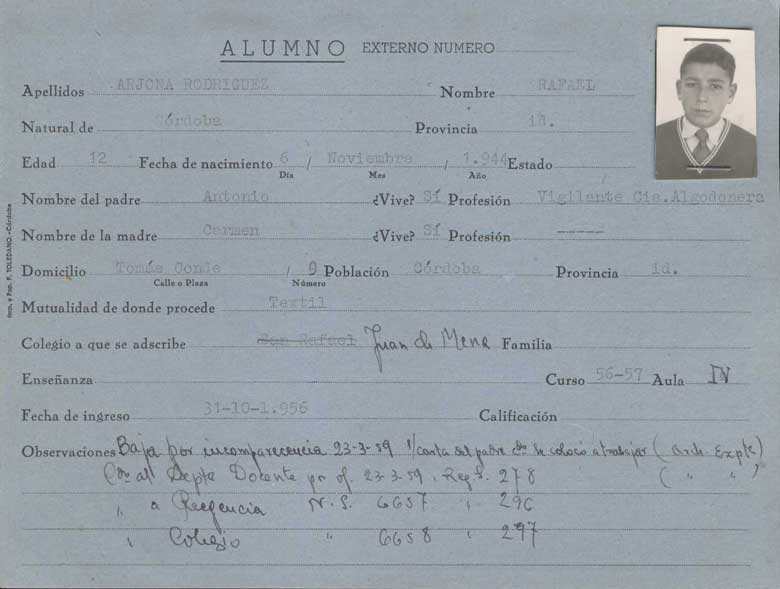 ALUMNO EXTERNO NUMERO
Apellidos ARJONA RODRIGUEZ Nombre RAFAEL
Natural de Córdoba Provincia id.
Edad 12 Fecha de nacimiento 6 / Noviembre / 1.944 Estado
Día Mes Año
Nombre del padre Antonio ¿Vive? Sí Profesión Vigilante Cia. Algodonera
Nombre de la madre Carmen ¿Vive? Sí Profesión -----
Domicilio Tomás Conde / 9 Población Córdoba Provincia id.
Calle o Plaza Número
Mutualidad de donde procede Textil
Colegio a que se adscribe San Rafael Juan de Mena Familia
Enseñanza Curso 56-57 Aula IV
Fecha de ingreso 31-10-1.956 Calificación
Observaciones Baja por incomparecencia 23-3-59 s/ carta del padre se colocó a trabajar (Arch. Expte)
al Depte Docente pr of. 23-3-59, Reg. S. 278 ( " " )
" a Regencia N.S. 6657 " 296
" Colegio " 6658 " 297
Imp. y Pap. F. TOLEDANO.-Córdoba